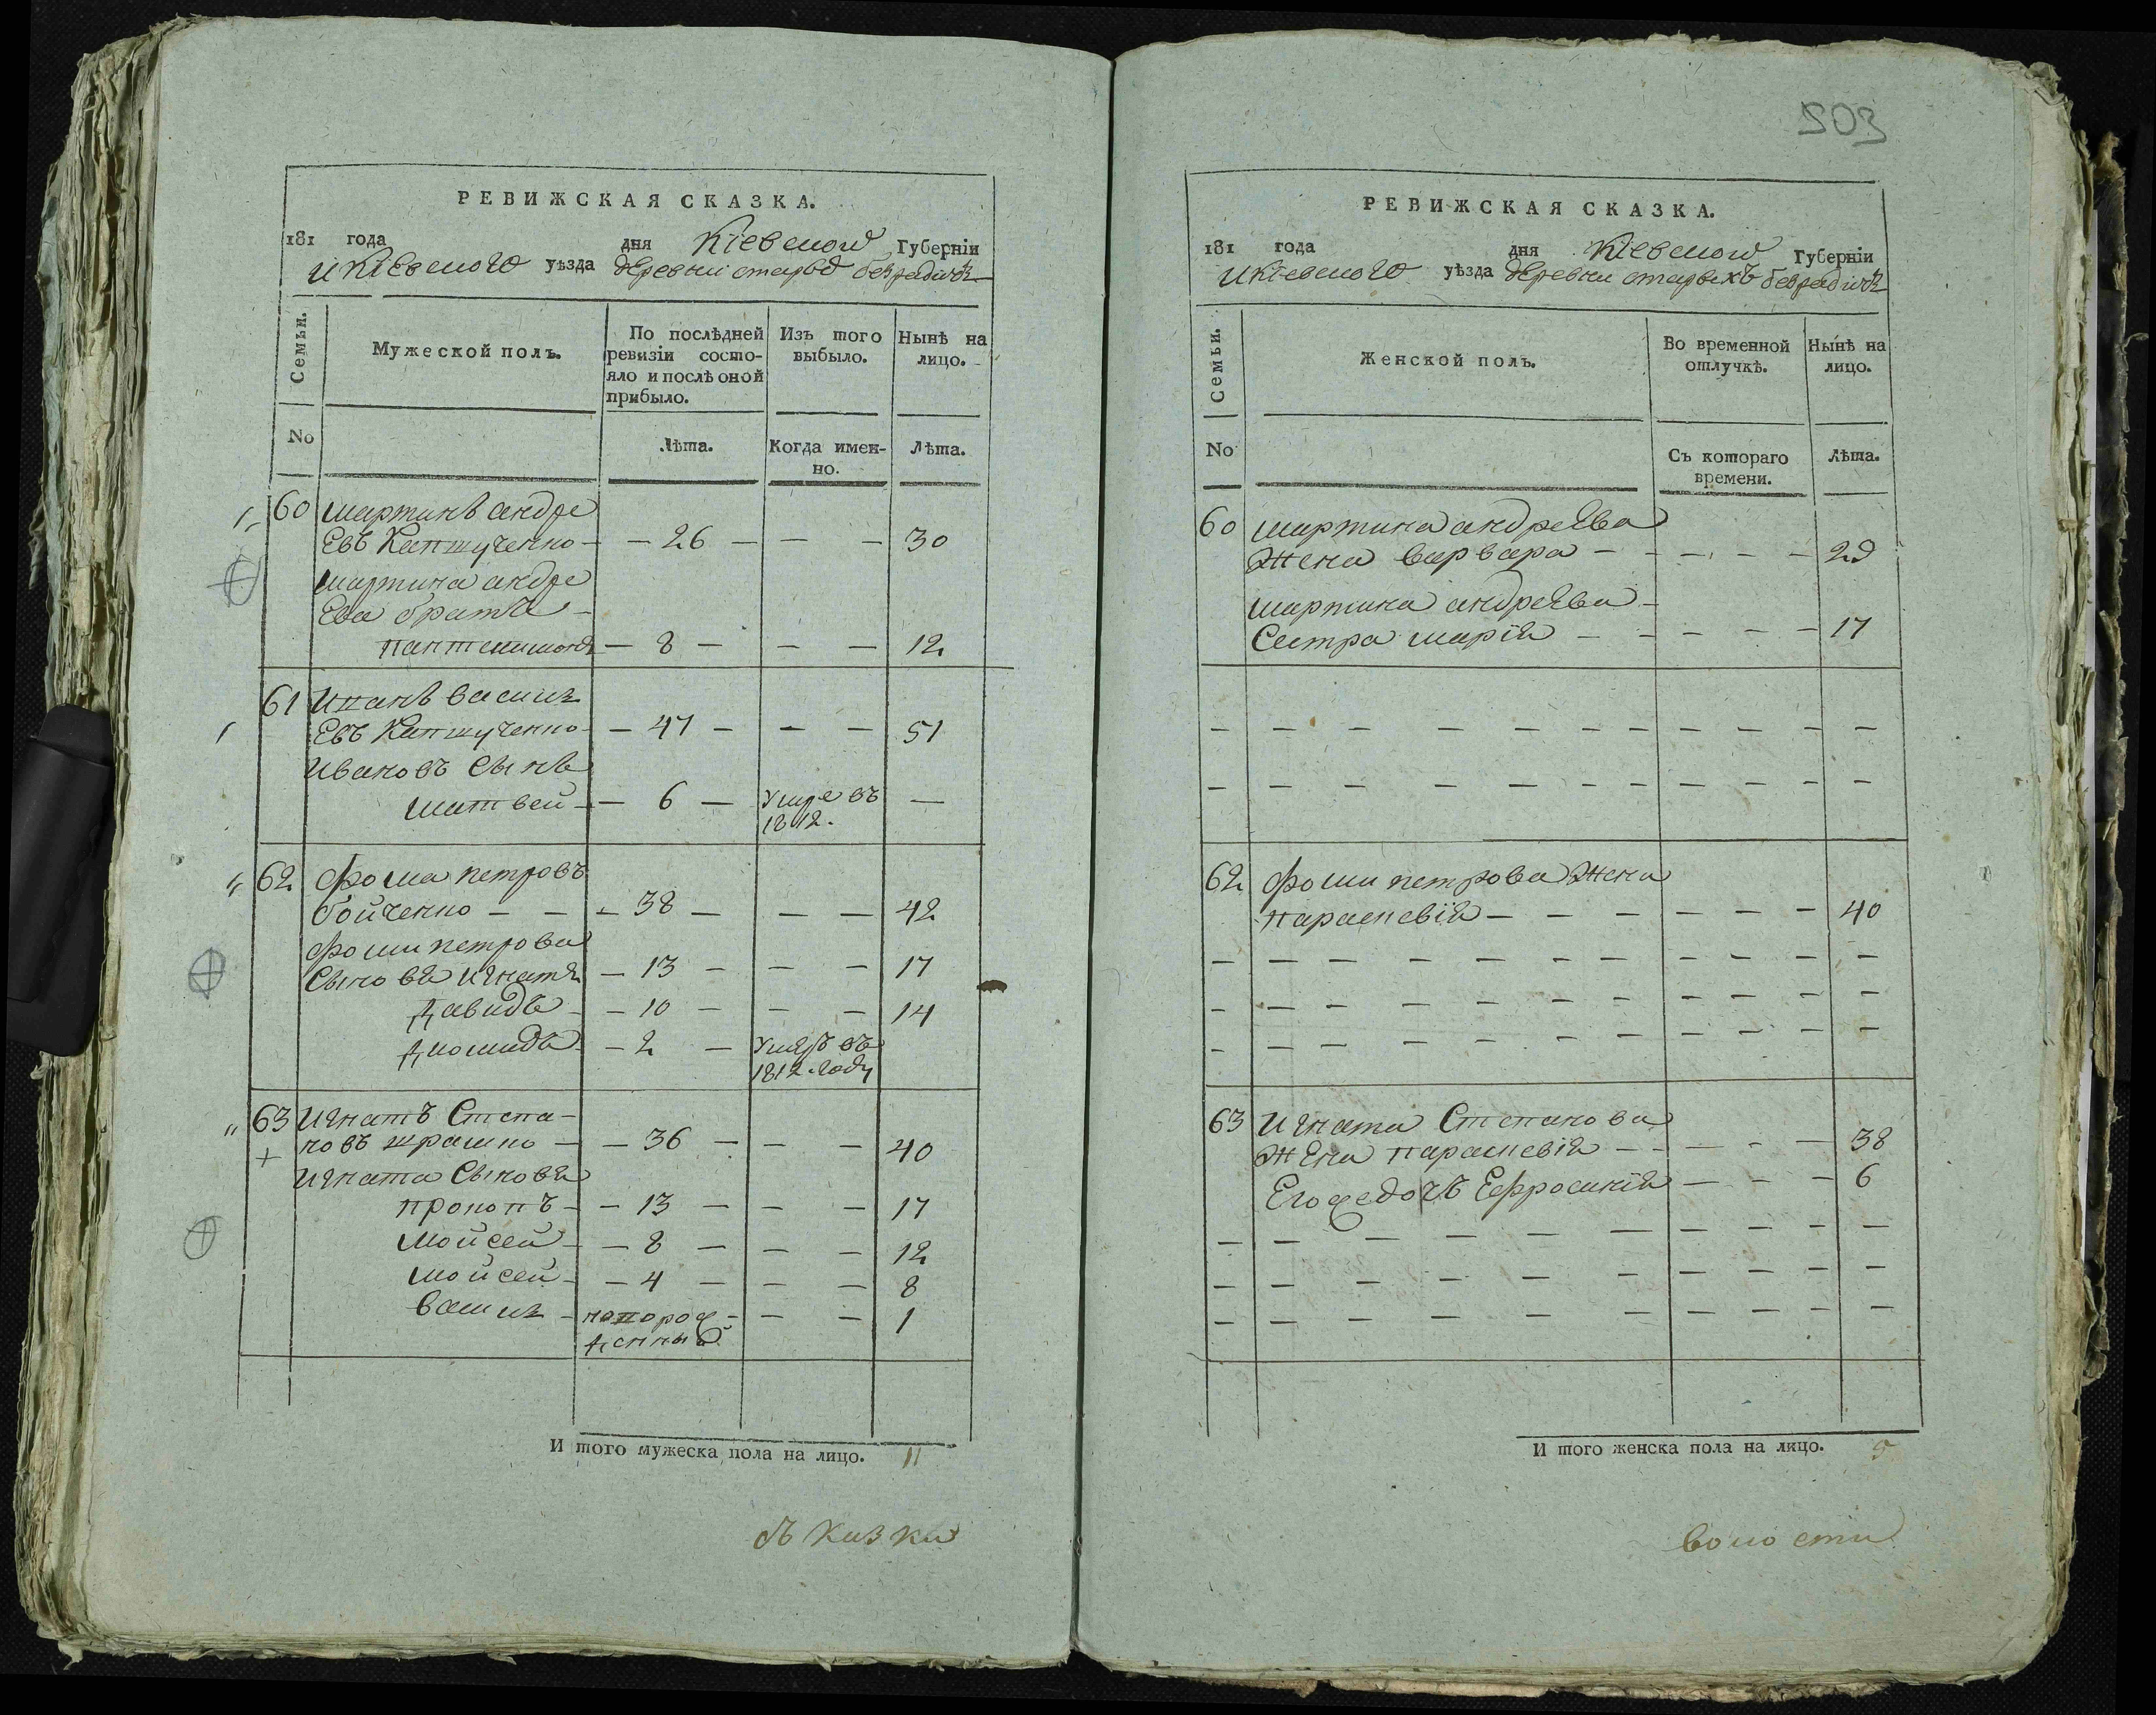 РЕВИЖСКАЯ СКАЗКА.
181 года дня Кіевской Губерніи
и Кіевского уѣзда деревни старыхъ безрадичъ
Семьи.
Мужеской полъ.
По послѣдней ревизіи состо-
яло и послѣ оной прибыло.
Изъ того выбыло.
Нынѣ на лицо.
No
Лѣта.
Когда имен-
но.
Лѣта.
60 Мартинъ андре
Евъ Капшученко — 26 — — — 30
Мартина андре
Ева братъ
пантелимонъ — 8 — — — 12
61 Иванъ васил
Евъ Капшученко — 47 — — — 51
Ивановъ Сынъ
Матвей — 6 — Умре въ —
1812.
62 Фома петровъ
бойченко — — 38 — — — 42
Фоми петрова
Сыновя Игнатъ — 13 — — — 17
Давидъ — 10 — — — 14
Диомидъ — 2 — Умръ въ
1812 году
63 Игнатъ Степа-
новъ — 36 — — — 40
Игната Сыновя
прокопъ — 13 — — — 17
Мойсей — 8 — — — 12
Мойсей — 4 — — — 8
васил — новорож- — — 1
денный
И того мужеска пола на лицо. 11
съказки
503
РЕВИЖСКАЯ СКАЗКА.
181 года дня Кіевской Губерніи
и Кіевского уѣзда деревни старыхъ безрадичъ
Семьи.
Женской полъ.
Во временной отлучкѣ.
Нынѣ на лицо.
No
Съ котораго времени.
Лѣта.
60 Мартина андреЕва
Жена варвара — — — — 29
Мартина андреЕва —
Сестра Марія — — — — 17
62 Фоми петрова Жена
параскевія — — — — — 40
63 Игната Степанова
жЕна параскевія — — — — 38
Его дочъ Ефросинія — — — 6
И того женска пола на лицо. 5
волости